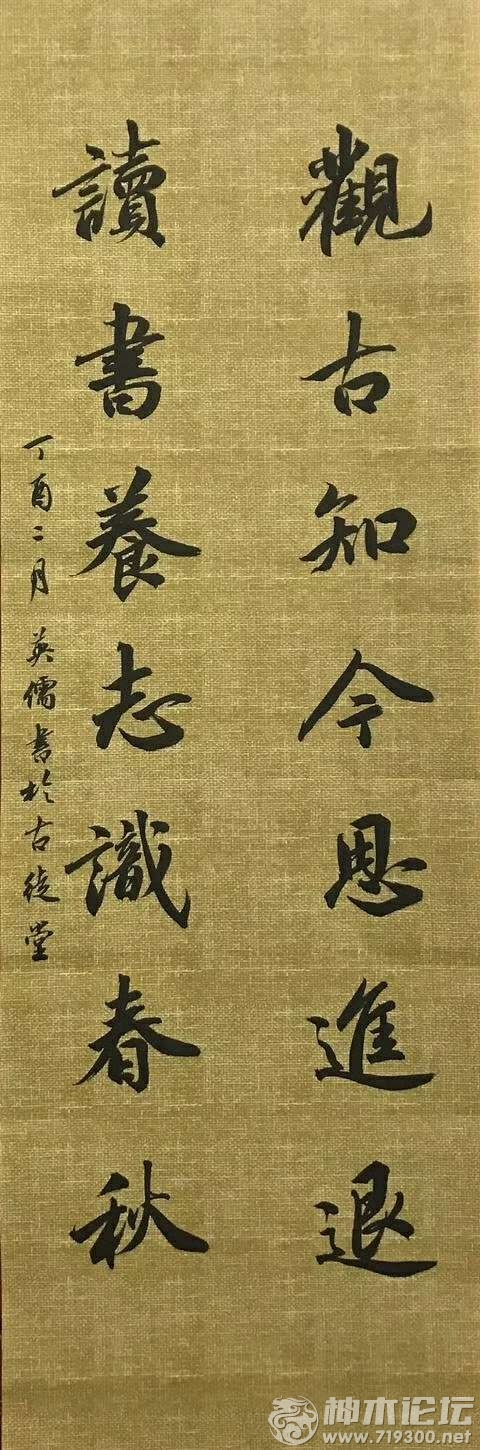 觀古知今思進退
讀書養志識春秋
丁酉二月英儒書於古徒堂
神木论坛
www.719300.net